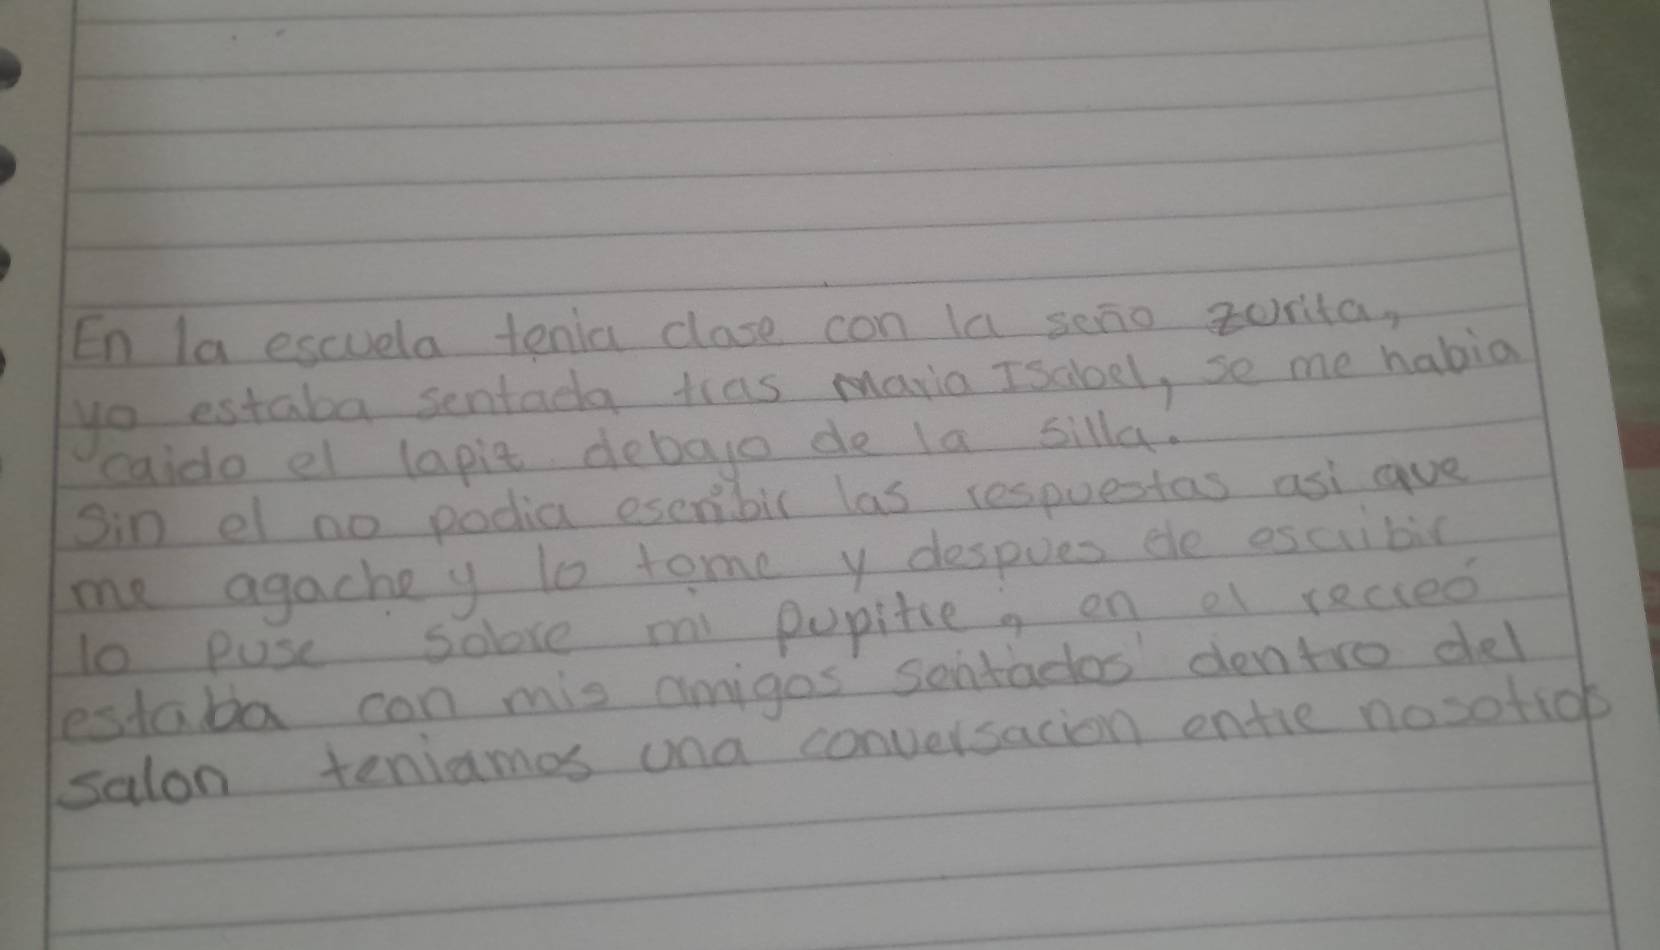 En la escuela tenia clase con la seño zurita,
yo estaba sentada tras Maria Isabel, se me habia
caido el lapiz debajo de la silla.
Sin el no podia escribir las respuestas asi que
me agache y lo tome y despues de escribir
lo puse sobre mi pupitre, en el recreo
estaba con mis amigos sentados dentro del
salon teniamos una conversacion entre nosotros